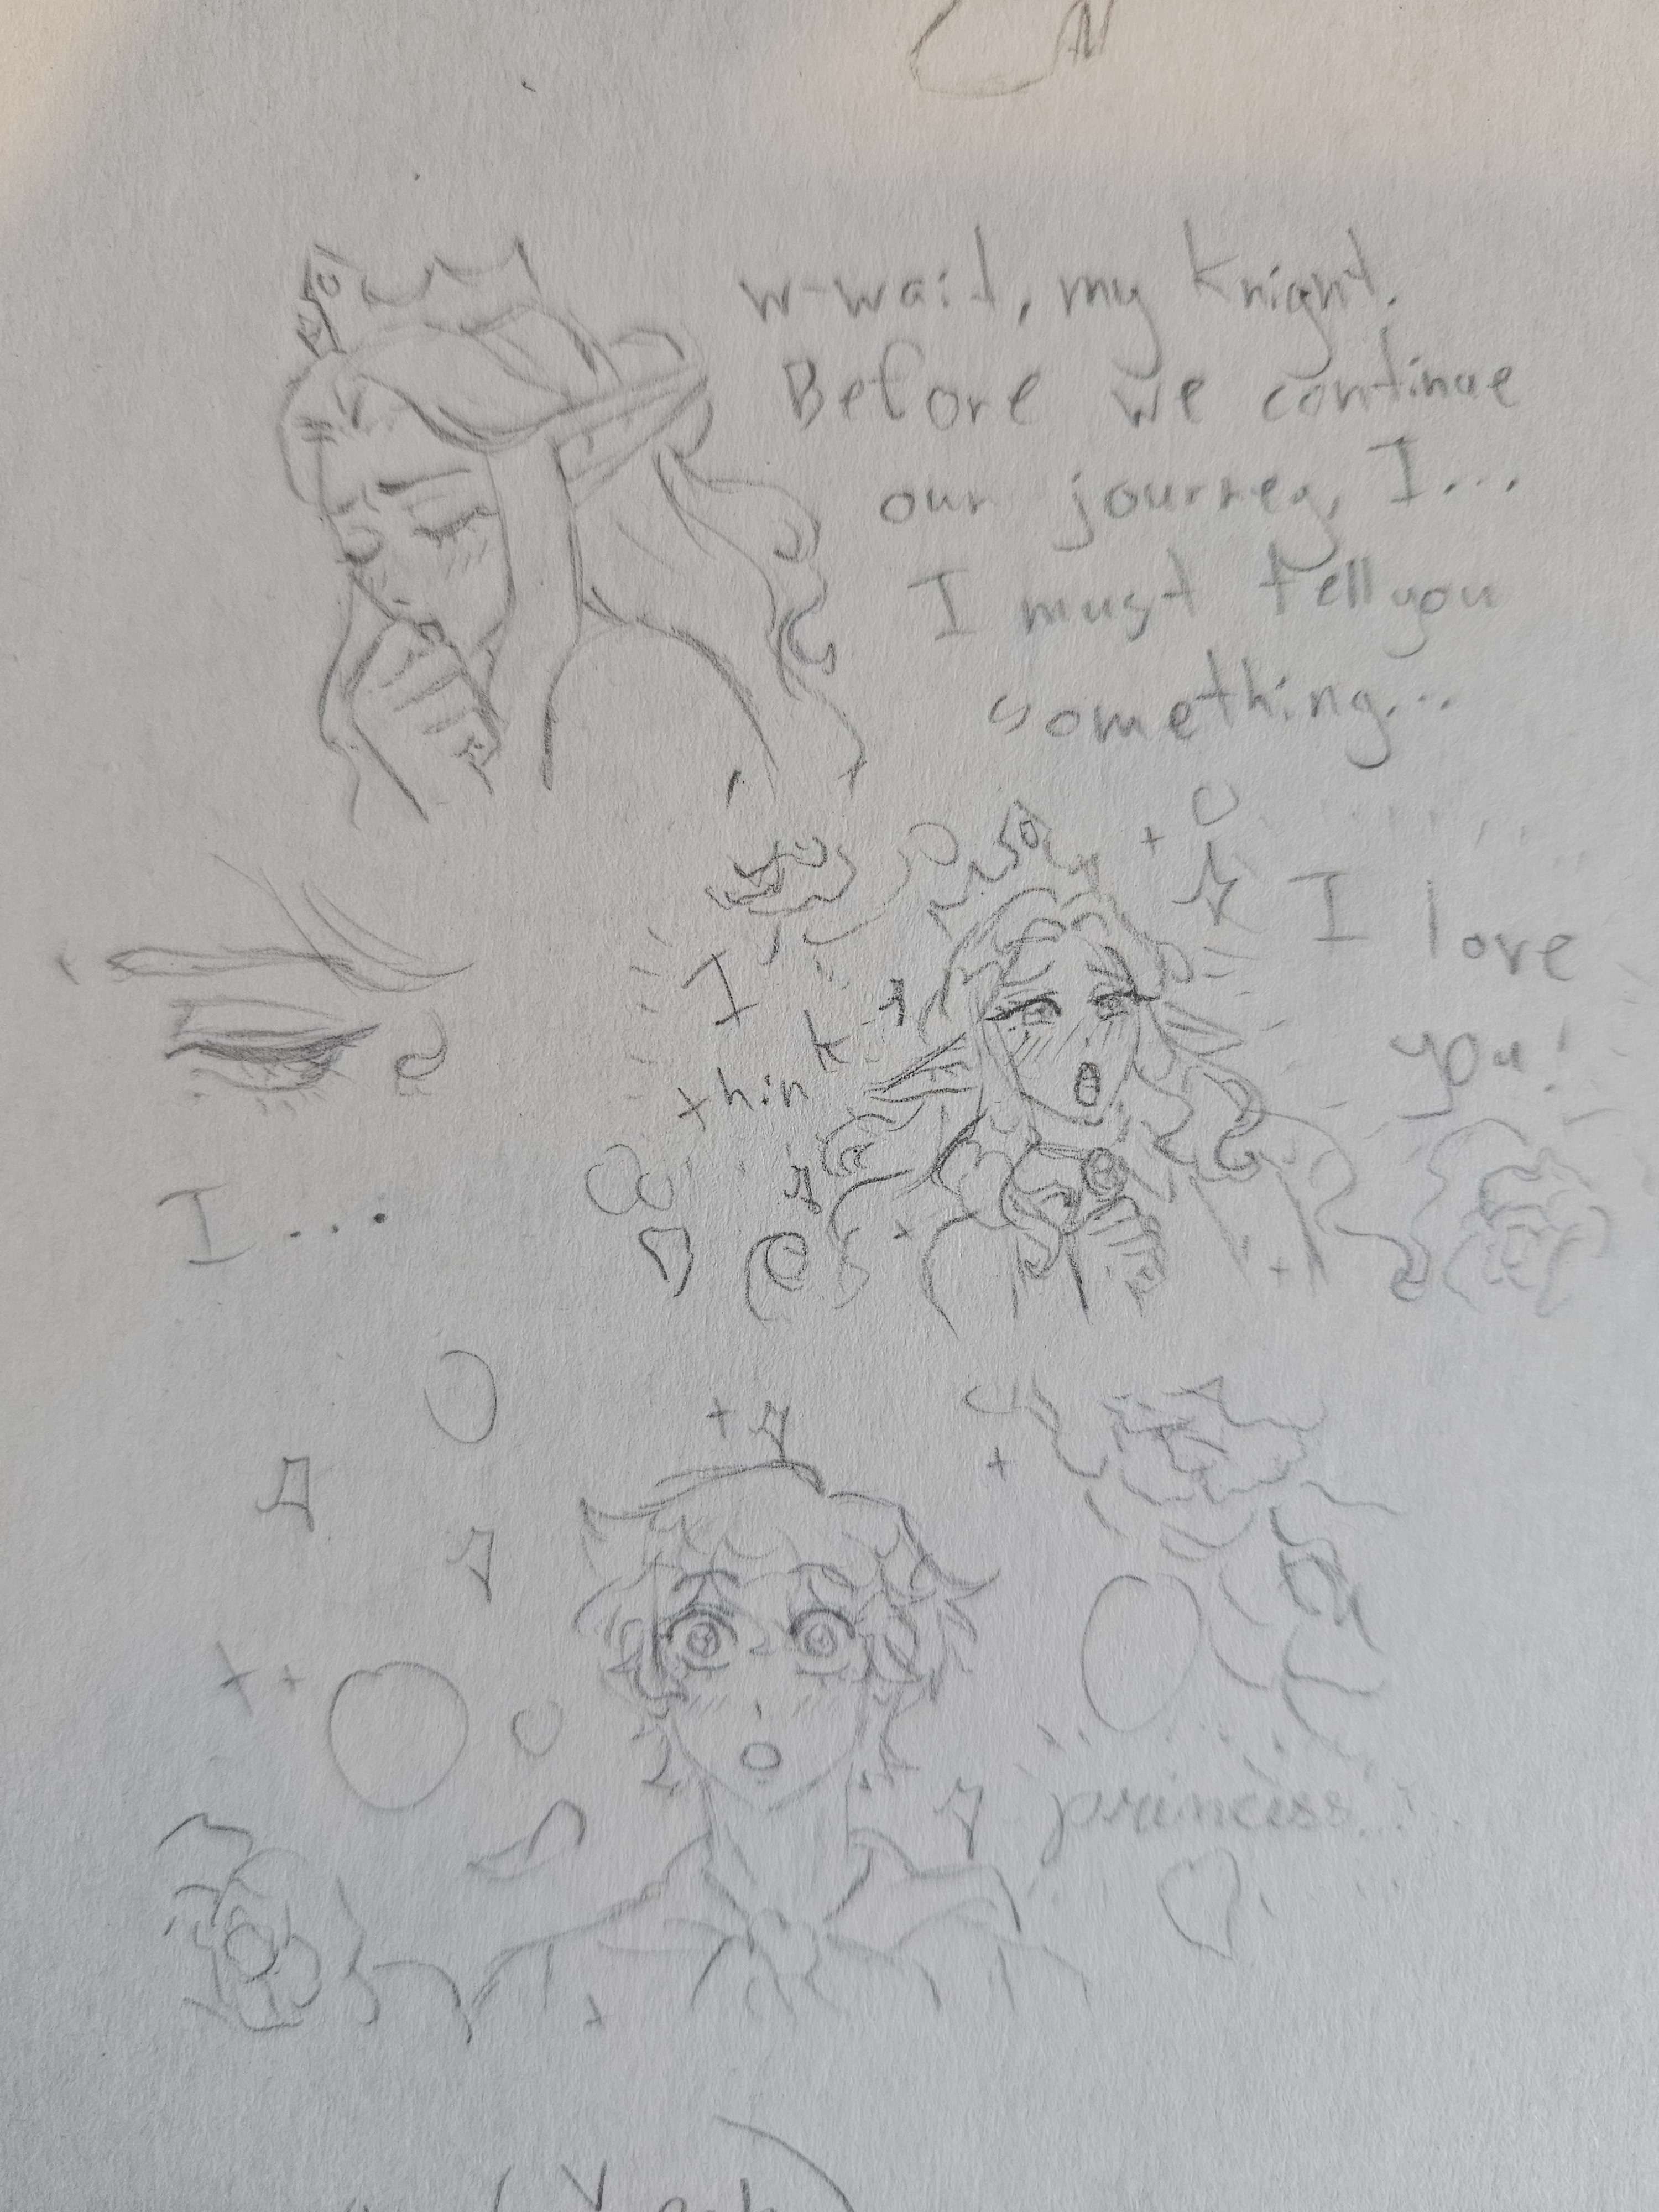 w-wait, my knight.
Before we continue
our journey, I...
I must tell you
something...
I...
I
think
I love
you!
princess...